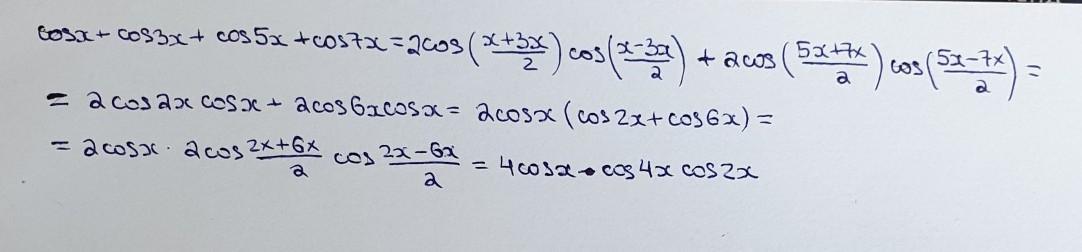 cosx + cos3x + cos5x + cos7x = 2cos(\frac{x+3x}{2}) cos(\frac{x-3x}{2}) + 2cos(\frac{5x+7x}{2}) cos(\frac{5x-7x}{2}) =
= 2cos2x cosx + 2cos6xcosx = 2cosx (cos2x + cos6x) =
= 2cosx · 2cos\frac{2x+6x}{2} cos\frac{2x-6x}{2} = 4cosx · cos4x cos2x